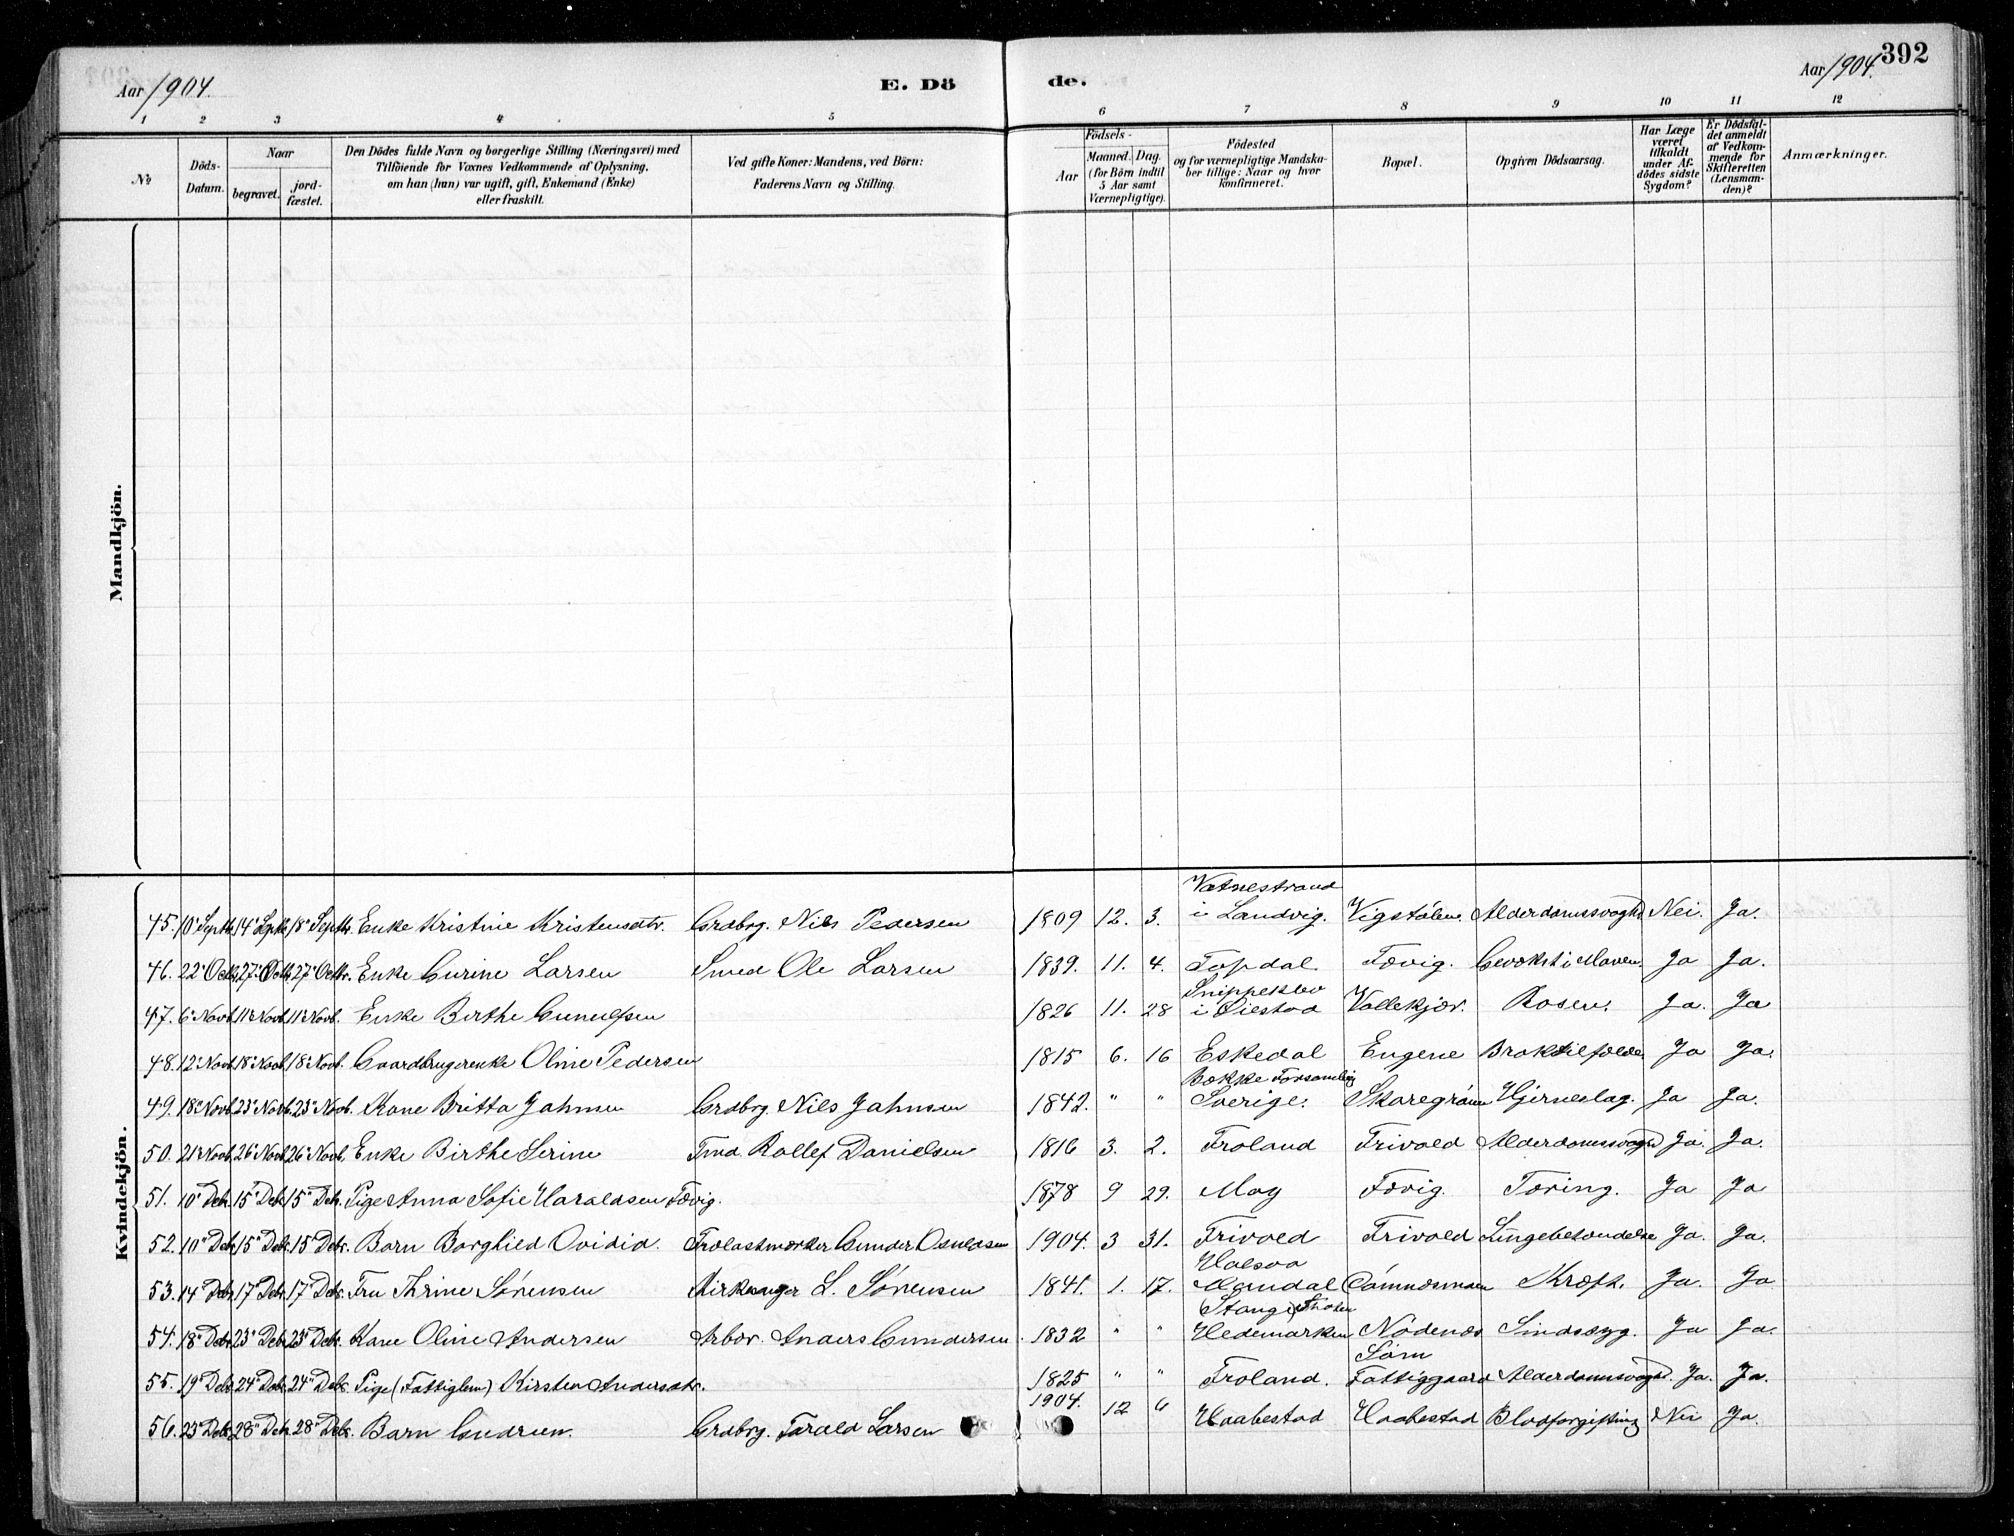 Aar 1904.
E. Dö de.
Aar 1904.
392
1 2 3 4 5 6 7 8 9 10 11 12
No
Döds-Datum.
Naar
begravet.
jord-fæstet.
Den Dödes fulde Navn og borgerlige Stilling (Næringsvei) med
Tilföiende for Voxnes Vedkommende af Oplysning,
om han (hun) var ugift, gift, Enkemand (Enke)
eller fraskilt.
Ved gifte Koner: Mandens, ved Börn:
Faderens Navn og Stilling.
Födsels-
Aar
Maaned. Dag.
(for Börn indtil
5 Aar samt
Værnepligtige).
Födested
og for værnepligtige Mandska-
ber tillige: Naar og hvor
konfirmeret.
Bopæl.
Opgiven Dödsaarsag.
Har Læge
været
tilkaldt
under Af-
dödes sidste
Sygdom?
Er Dödsfal-
det anmeldt
af Vedkom-
mende for
Skifteretten
(Lensman-
den)?
Anmærkninger.
Mandkjön.
Kvindekjön.
Vatnestrand
45. 10' Septb. 14' Septb. 18' Septb. Enke Kristine Kristensdtr. Grdbrg. Nils Pedersen 1809 12. 3. i Landvig. Vigstølen. Alderdomssvaghd Nei. Ja.
46. 22' Octb. 27' Octb. 27' Octbr. Enke Gurine Larsen Smed Ole Larsen 1839. 11. 4. Topdal Fævig. Gevækst i Maven. Ja Ja.
Snippekbo
47. 6' Novb. 11' Novb. 11' Novb. Enke Birthe Gunulfsen 1826 11. 28 i Øiestad Vallekjær. Rosen. Ja. Ja
48. 12' Novb. 18' Novb. 18' Novb. Gaardbrugerenke Oline Pedersen 1815 6. 16 Eskedal Engene Braktilfælde Ja Ja.
Bokke Forsamling
49. 18' Novb. 23' Novb. 23' Novb. Kone Britta Jahnsen Grdbrg. Nils Jahnsen 1842. " " Sverige. Skaregrøm Hjerneslag. Ja Ja.
50. 21' Novb. 26' Novb. 26' Novb. Enke Birthe Serine Tmd. Rollef Danielsen 1816 3. 2. Froland Frivold Alderdomssvaghd Ja. Ja.
51. 10' Deb. 15' Deb. 15' Deb. Pige Anna Sofie Haraldsen Fævig. 1878 9 29. Moy Fævig. Tæring. Ja Ja
52. 10' Deb. 15' Deb. 15' Deb. Barn Borghild Ovidia. Gunder Osuldsen 1904. 3 31. Frivold Frivold Lungebetændelse Ja. Ja.
Halsaa
53. 14' Deb. 17' Deb. 17' Deb. Fru Thrine Sørensen Kirkesanger L. Sørensen 1841. 1. 17. Mandal Dømmesmoen Kræft. Ja. Ja
Stange
54. 18' Deb. 23' Deb. 23' Deb. Kone Oline Andersen Arbdr. Anders Gundersen 1832 " " Hedemarken Nødenæs Sindssyg. Ja Ja.
Søm
55. 19' Deb. 24' Deb. 24' Deb. Pige (Fattiglem) Kirsten Andersdtr. 1825 " " Froland. Fattiggaard Alderdomssvaghd. Ja. Ja.
56. 23' Deb. 28' Deb. 28' Deb. Barn Gudrun. Grdbrg. Tarald Larsen 1904. 12 6 Haabestad Haabestad Blodforgiftning Nei Ja.